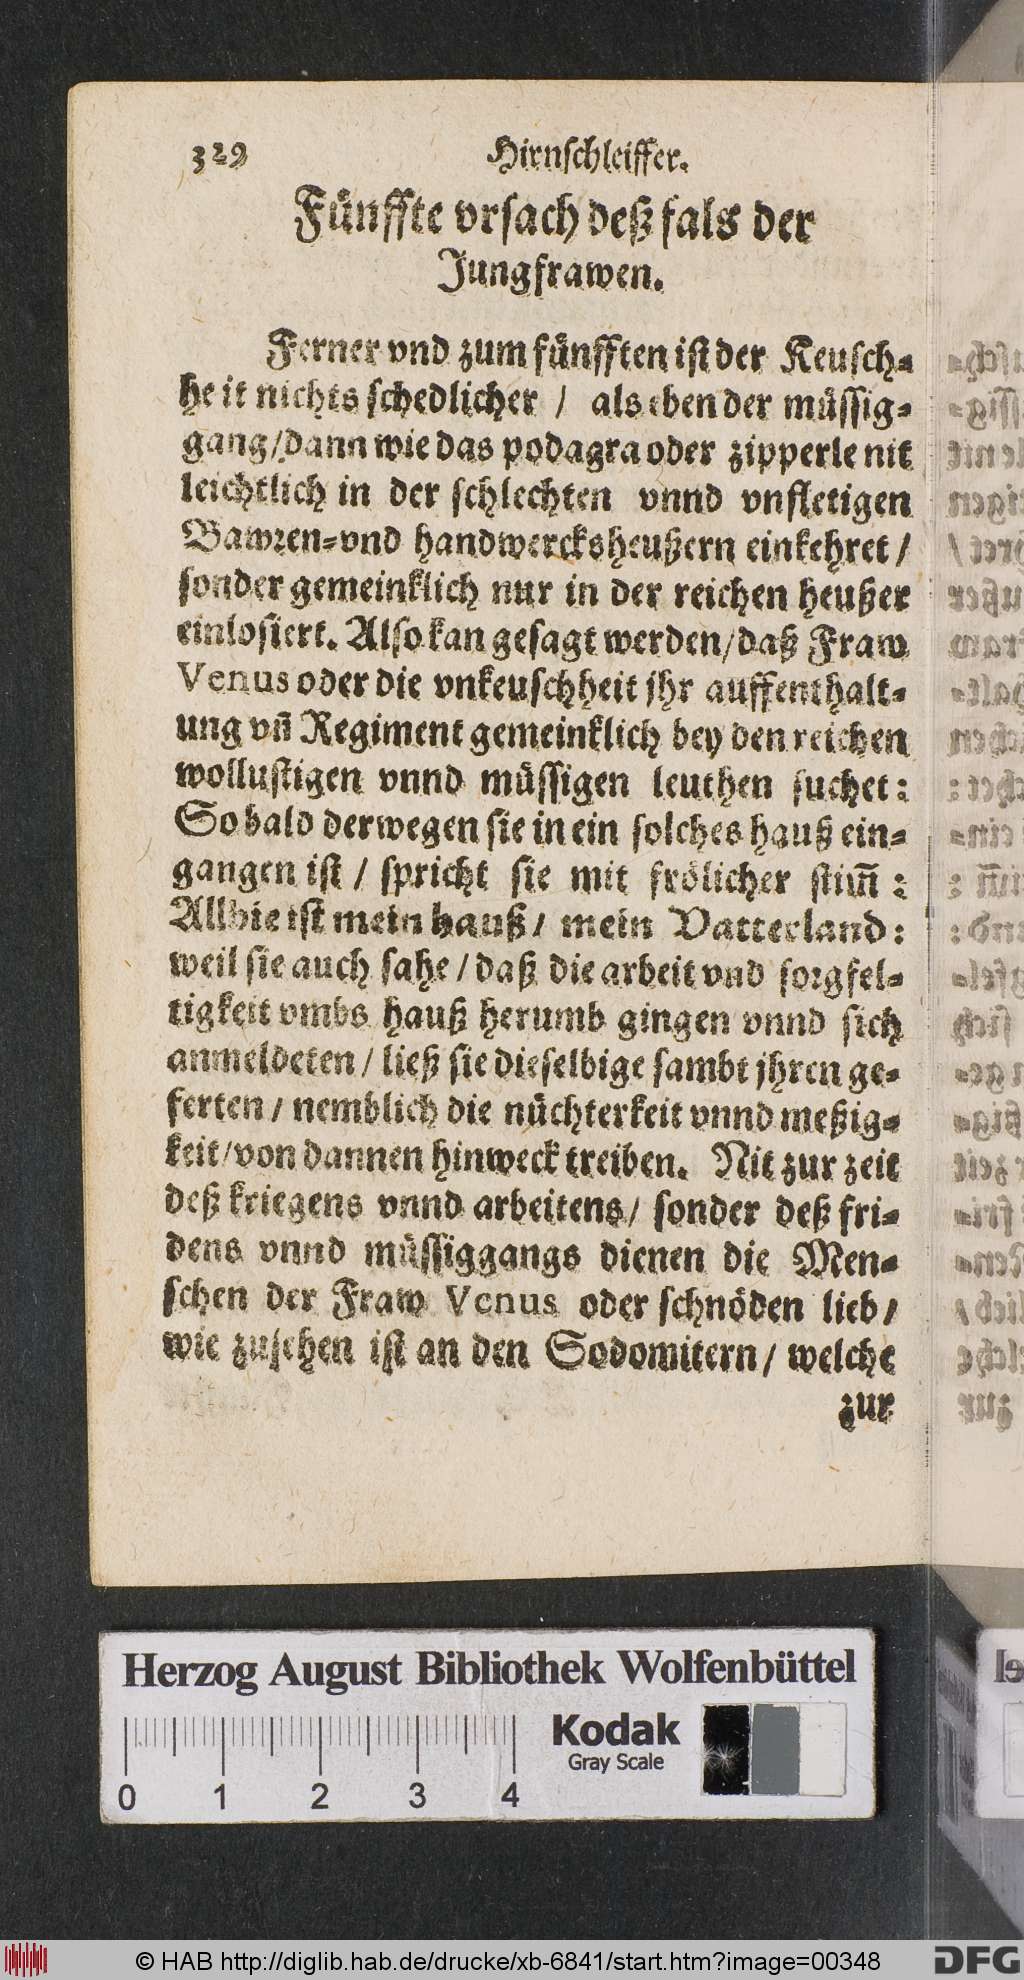 329 Hirnschleiffer.
Fünffte vrsach deß fals der
Jungfrawen.
Ferner vnd zum fünfften ist der Keusch-
heit nichts schedlicher / als eben der müssig-
gang / dann wie das podagra oder zipperle nit
leichtlich in der schlechten vnnd vnfletigen
Bawren- vnd handwercksheußern einkehret /
sonder gemeinklich nur in der reichen heußer
einlosiert. Also kan gesagt werden / daß Fraw
Venus oder die vnkeuschheit jhr auffenthalt-
ung vn̄ Regiment gemeinklich bey den reichen
wollustigen vnnd müssigen leuthen suchet:
So bald derwegen sie in ein solches hauß ein-
gangen ist / spricht sie mit frölicher stim̄:
Allhie ist mein hauß / mein Vatterland:
weil sie auch sahe / daß die arbeit vnd sorgfel-
tigkeit vmbs hauß herumb gingen vnnd sich
anmeldeten / ließ sie dieselbige sambt jhren ge-
ferten / nemblich die nüchterkeit vnnd meßig-
keit / von dannen hinweck treiben. Nit zur zeit
deß kriegens vnnd arbeitens / sonder deß fri-
dens vnnd müssiggangs dienen die Men-
schen der Fraw Venus oder schnöden lieb /
wie zusehen ist an den Sodomitern / welche
zur
Herzog August Bibliothek Wolfenbüttel
Kodak
Gray Scale
0 1 2 3 4
© HAB http://diglib.hab.de/drucke/xb-6841/start.htm?image=00348
DFG